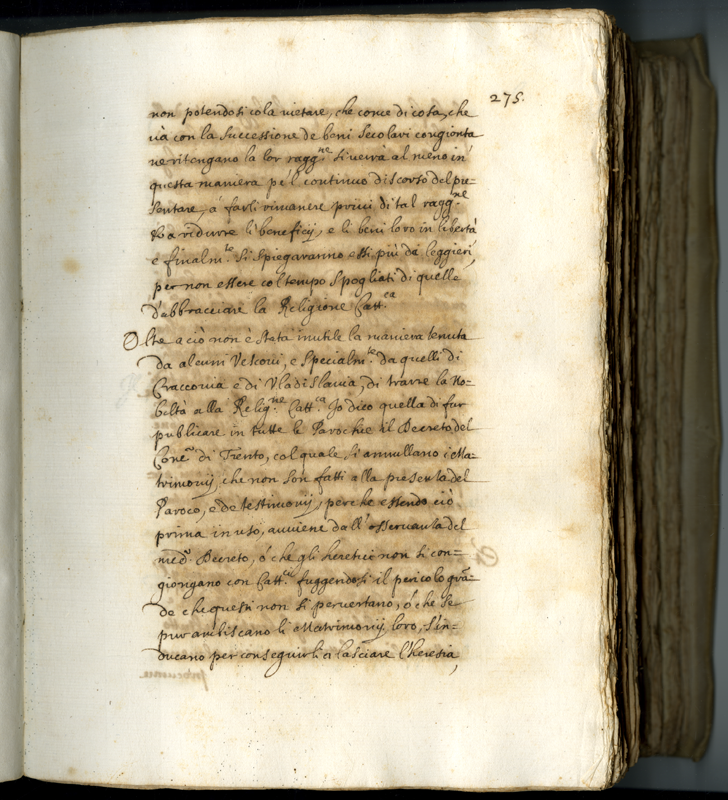 275.
non potendosi cola vietare, che come di cosa, che
và con la successione de beni secolari congionta
ne ritengano la lor ragg.ne si verrà al meno in
questa maniera p el continuo discorso del pre=
sentare, à farli rimanere privi di tal ragg.ne
e a ridurre li beneficij, e li beni loro in libertà
e finalm.te si spiegaranno essi più da leggieri,
per non essere col tempo spogliati di quelle
d'abbracciare la Religione Catt.ca
Olte a ciò non è stata inutile la maniera tenuta
da alcuni Vescovi, e specialm.te da quelli di
Craccovia e di Vladislavia, di trarre la No=
biltà alla Relig.ne Catt.ca Io dico quella di far
publicare in tutte le Parochie il Decreto del
Conc.o di Trento, col quale, si annullano i Ma=
trimonij, che non son fatti alla presenza del
Paroco, e de testimonij, perche essendo ciò
prima in uso, avviene dall'osservanza del
med.o Decreto, ò che gli heretici non si con=
giongano con Catt.ci fuggendosi il pericolo grã=
de che questi non si pervertano, ò che se
pur ambiscano li Matrimonij loro, s'in=
ducano per conseguirli a lasciare l'heresia,